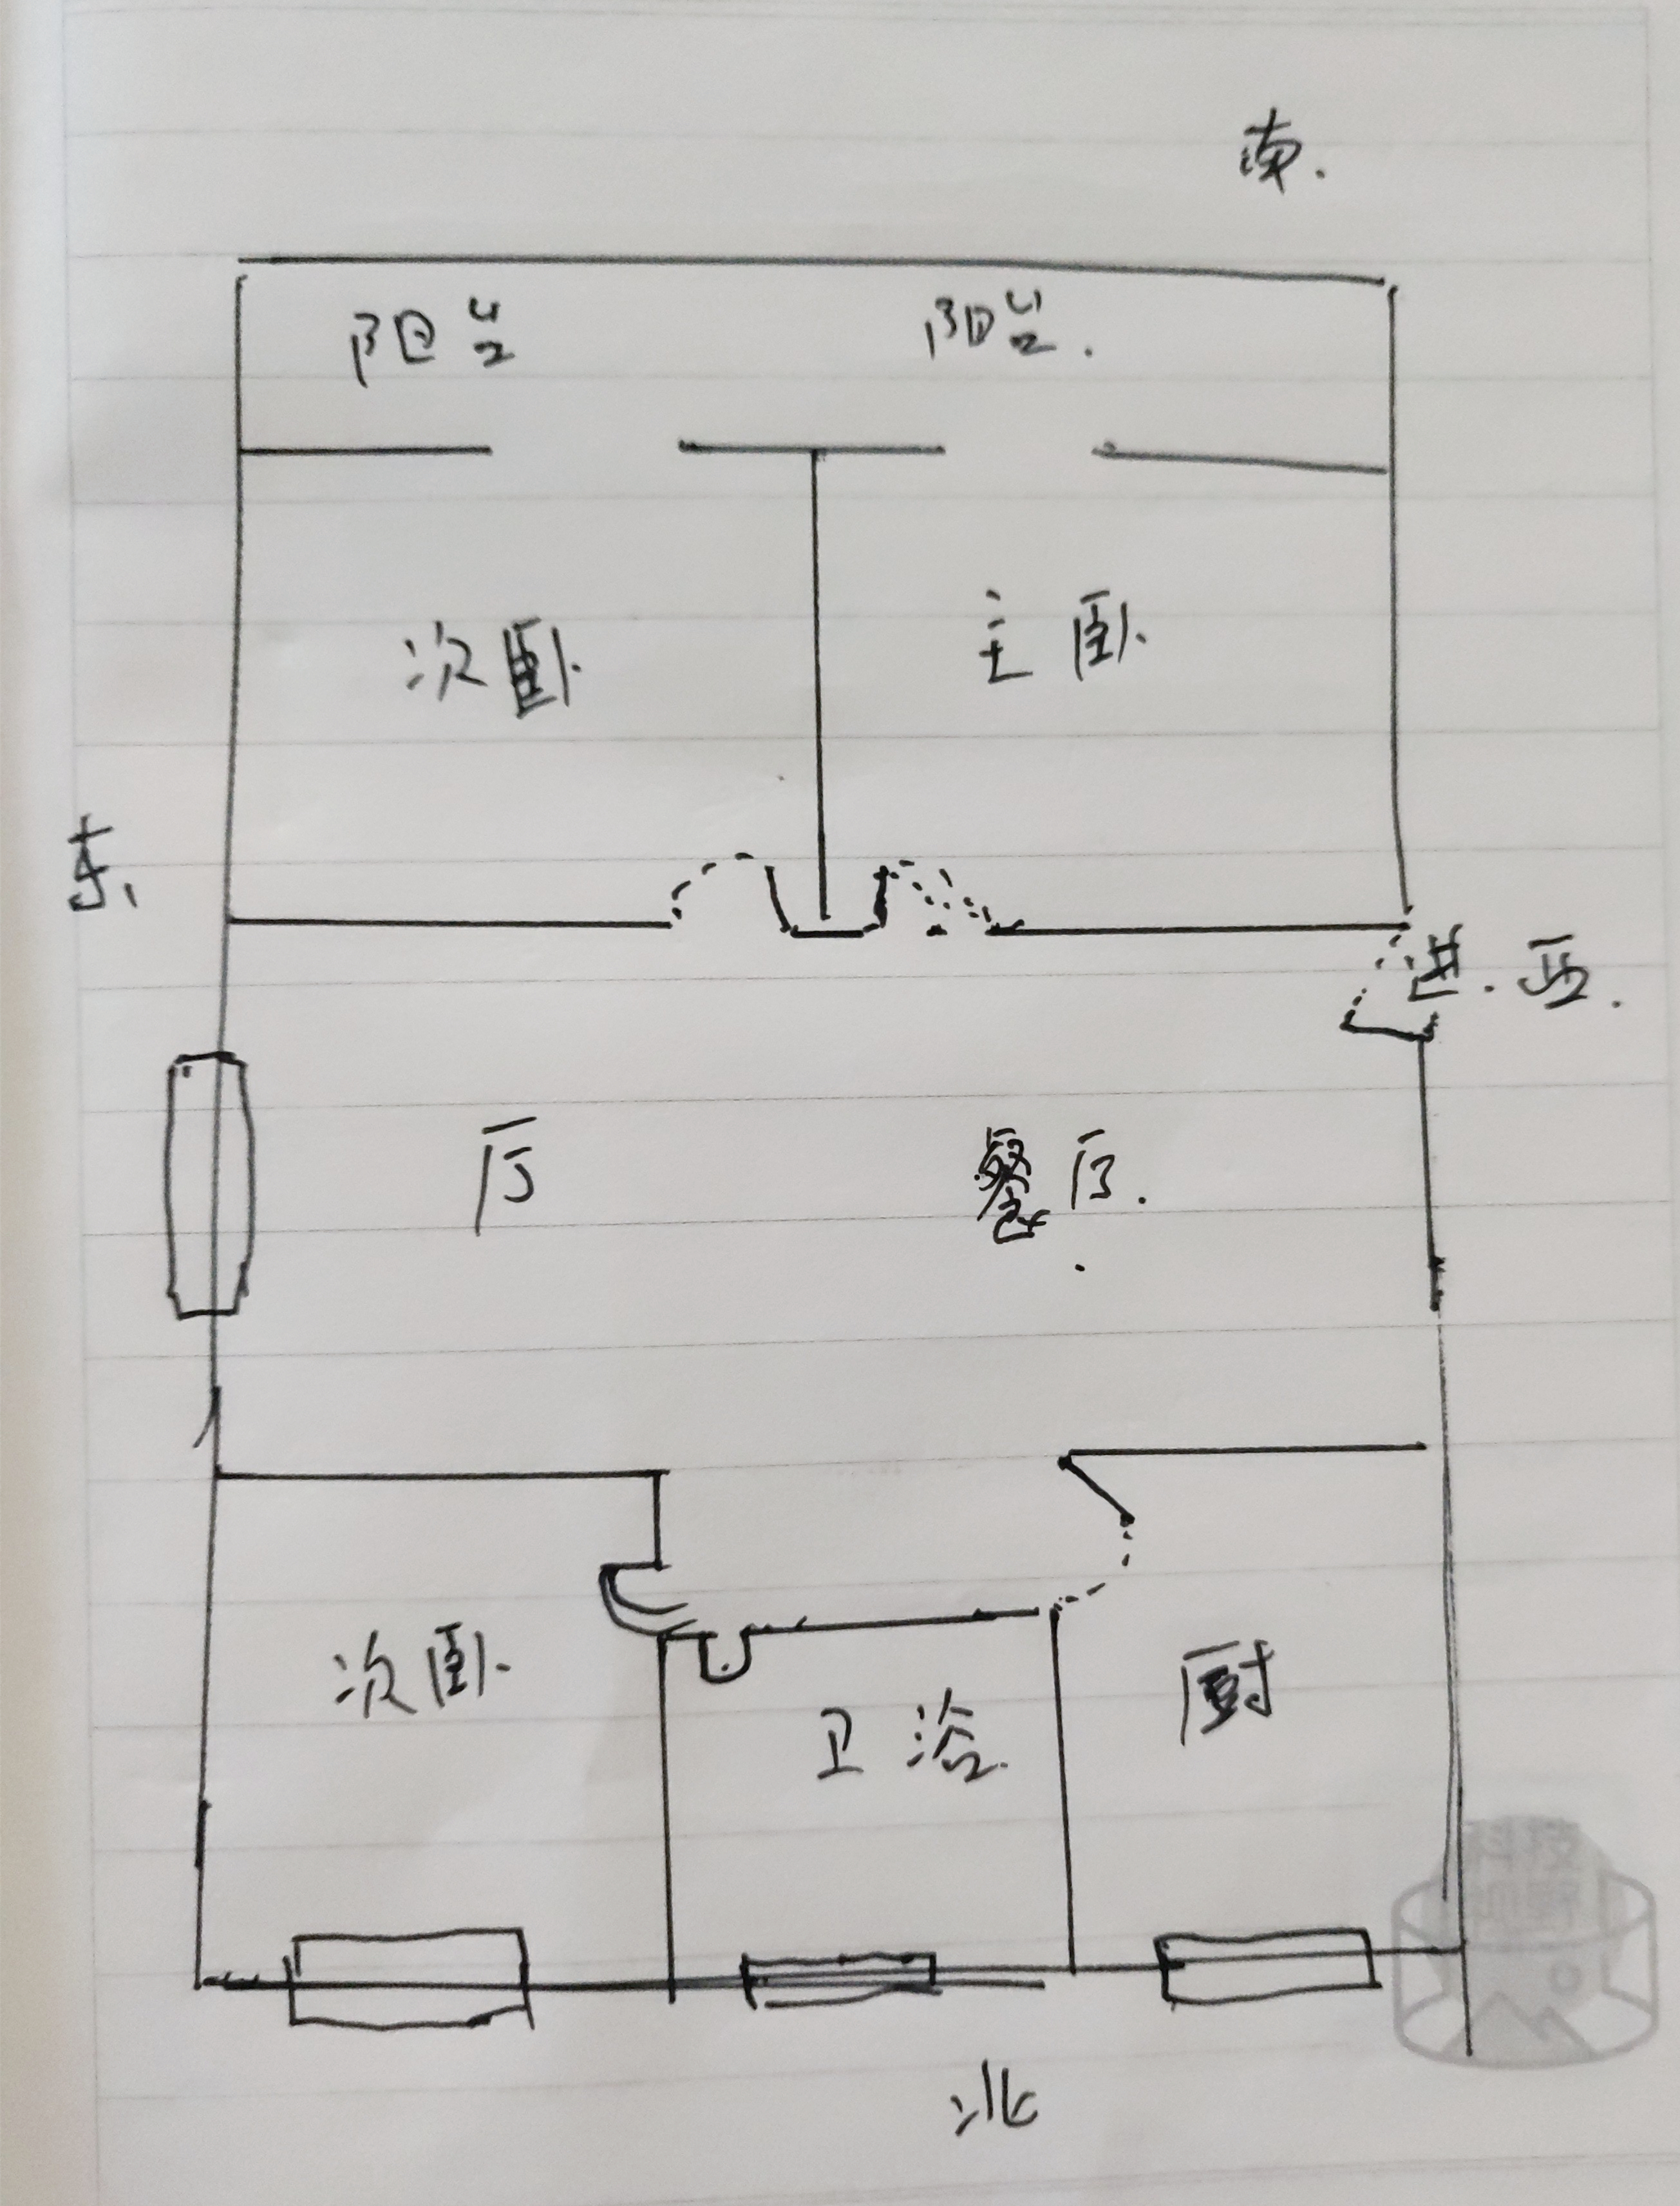 南.
阳台 阳台.
次卧 主卧.
东、
进. 西.
厅 餐厅.
次卧 卫浴. 厨
北